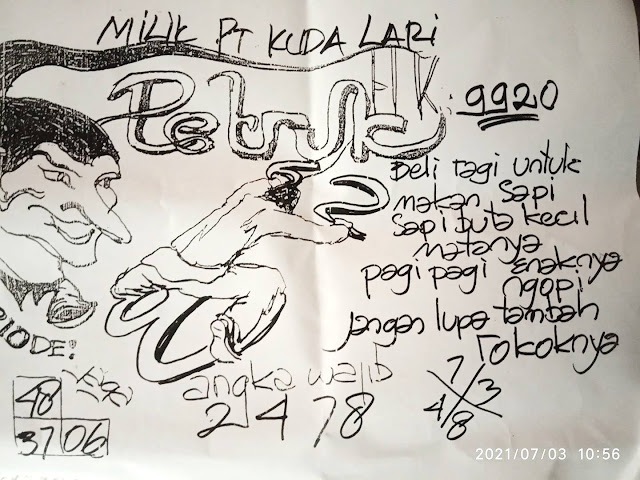 MILIK PT KUDA LARI
Petruk
: 9920
Beli ragi untuk
makan sapi
sapi buta kecil
matanya
pagi pagi enaknya
ngopi
jangan lupa tambah
rokoknya
IODE!
48
37 06
angka wajib
2 4 7 8
7 3
4 8
2021/07/03 10:56